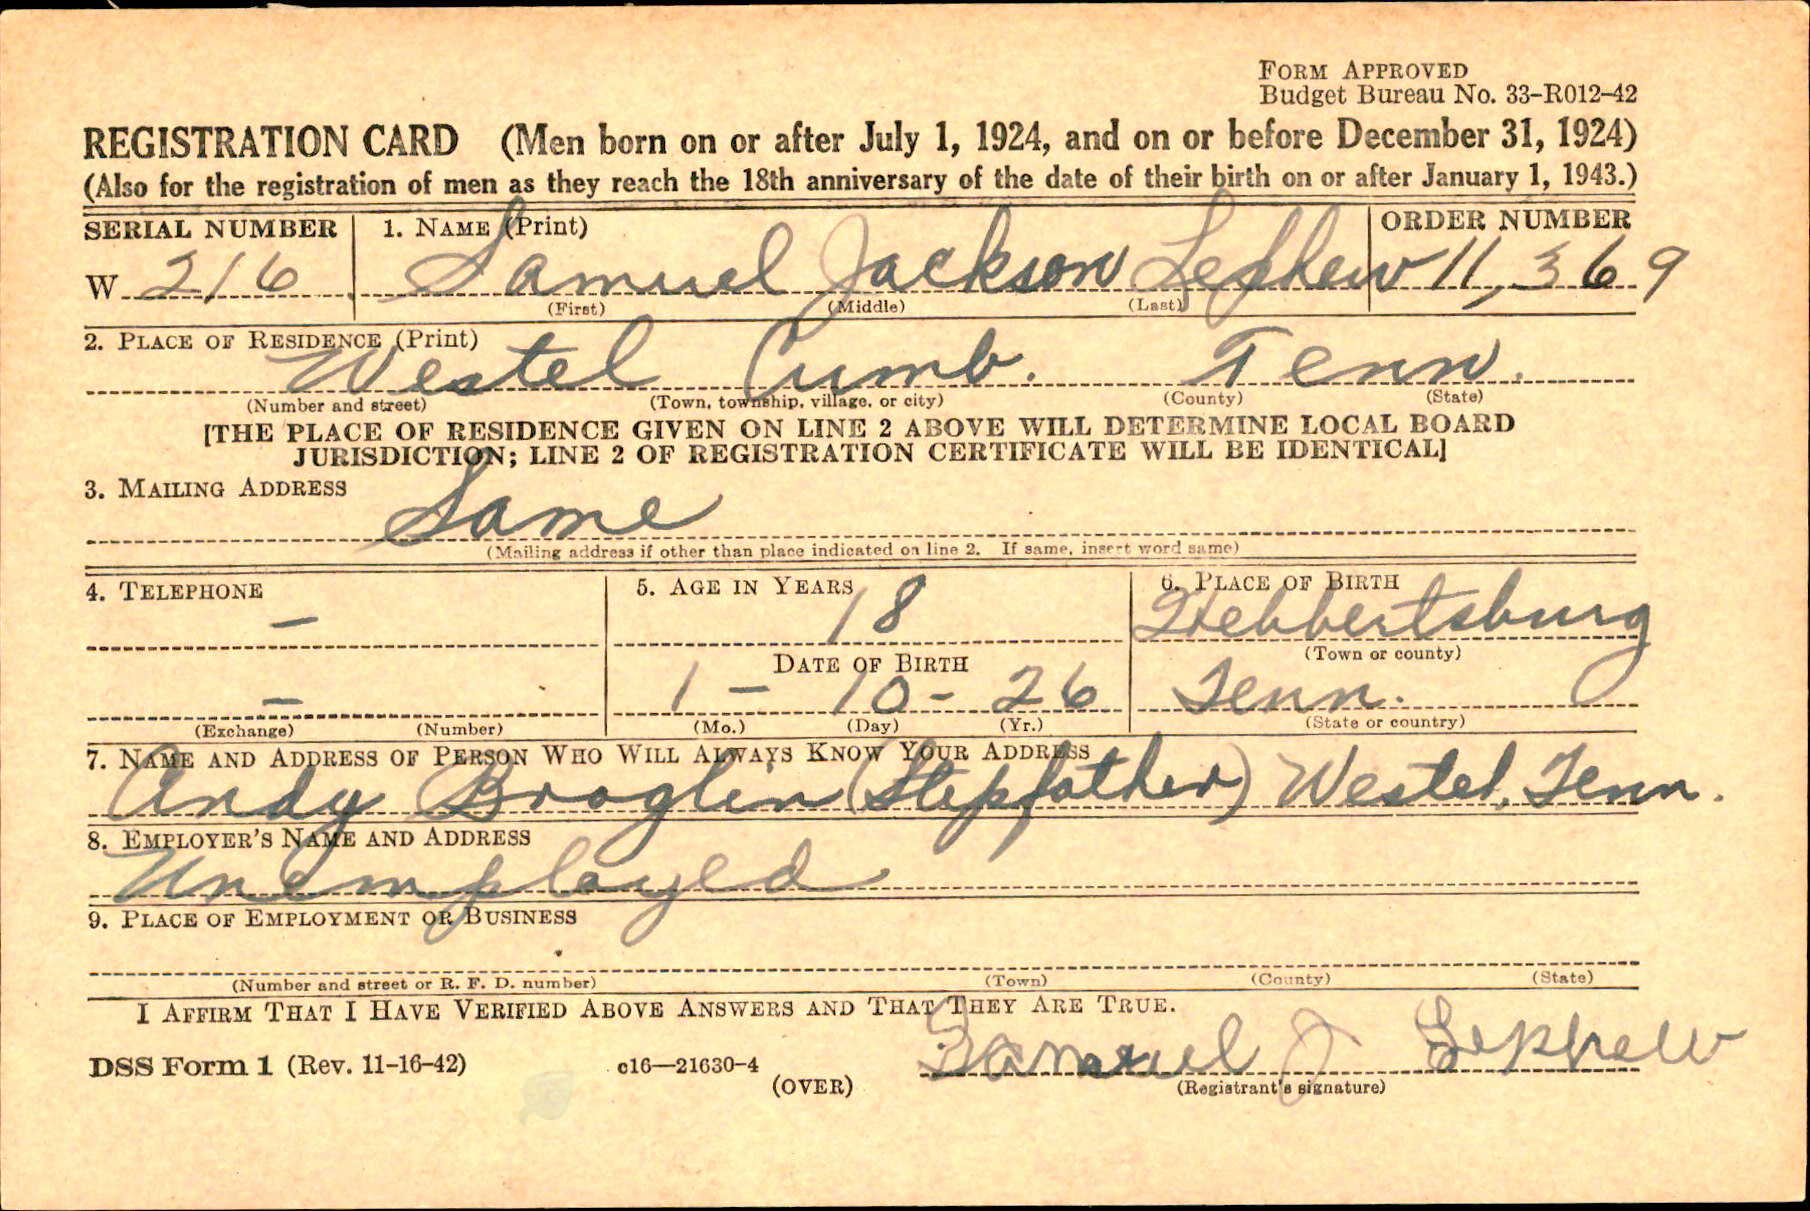 FORM APPROVED
Budget Bureau No. 33-R012-42
REGISTRATION CARD (Men born on or after July 1, 1924, and on or before December 31, 1924)
(Also for the registration of men as they reach the 18th anniversary of the date of their birth on or after January 1, 1943.)
SERIAL NUMBER 1. NAME (Print) ORDER NUMBER
W 216 Samuel Jackson Lephew 11,369
(First) (Middle) (Last)
2. PLACE OF RESIDENCE (Print)
Westel Cumb. Tenn.
(Number and street) (Town, township, village, or city) (County) (State)
[THE PLACE OF RESIDENCE GIVEN ON LINE 2 ABOVE WILL DETERMINE LOCAL BOARD
JURISDICTION; LINE 2 OF REGISTRATION CERTIFICATE WILL BE IDENTICAL]
3. MAILING ADDRESS
Same
(Mailing address if other than place indicated on line 2. If same, insert word same)
4. TELEPHONE 5. AGE IN YEARS 6. PLACE OF BIRTH
– 18 Hebbertsburg
DATE OF BIRTH (Town or county)
– 1 – 10 – 26 Tenn.
(Exchange) (Number) (Mo.) (Day) (Yr.) (State or country)
7. NAME AND ADDRESS OF PERSON WHO WILL ALWAYS KNOW YOUR ADDRESS
Andy Broglin (Stepfather) Westel, Tenn.
8. EMPLOYER'S NAME AND ADDRESS
Unemployed
9. PLACE OF EMPLOYMENT OR BUSINESS
(Number and street or R. F. D. number) (Town) (County) (State)
I AFFIRM THAT I HAVE VERIFIED ABOVE ANSWERS AND THAT THEY ARE TRUE.
DSS Form 1 (Rev. 11-16-42) c16—21630-4 Samuel J Lephew
(OVER) (Registrant's signature)